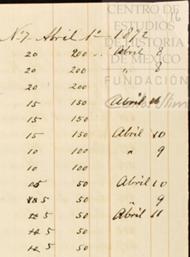 CENTRO DE
ESTUDIOS
DE HISTORIA
DE MÉXICO
FUNDACIÓN
16
N.7 Abril 1º 1872
20 200 " Abril 8
20 200 " 8
20 200
15 150 Abril
15 150
15 150 Abril 10
10 100 " 9
10 100
5 50 Abril 10
5 50 " 9
5 50 Abril 11
5 50
5 50